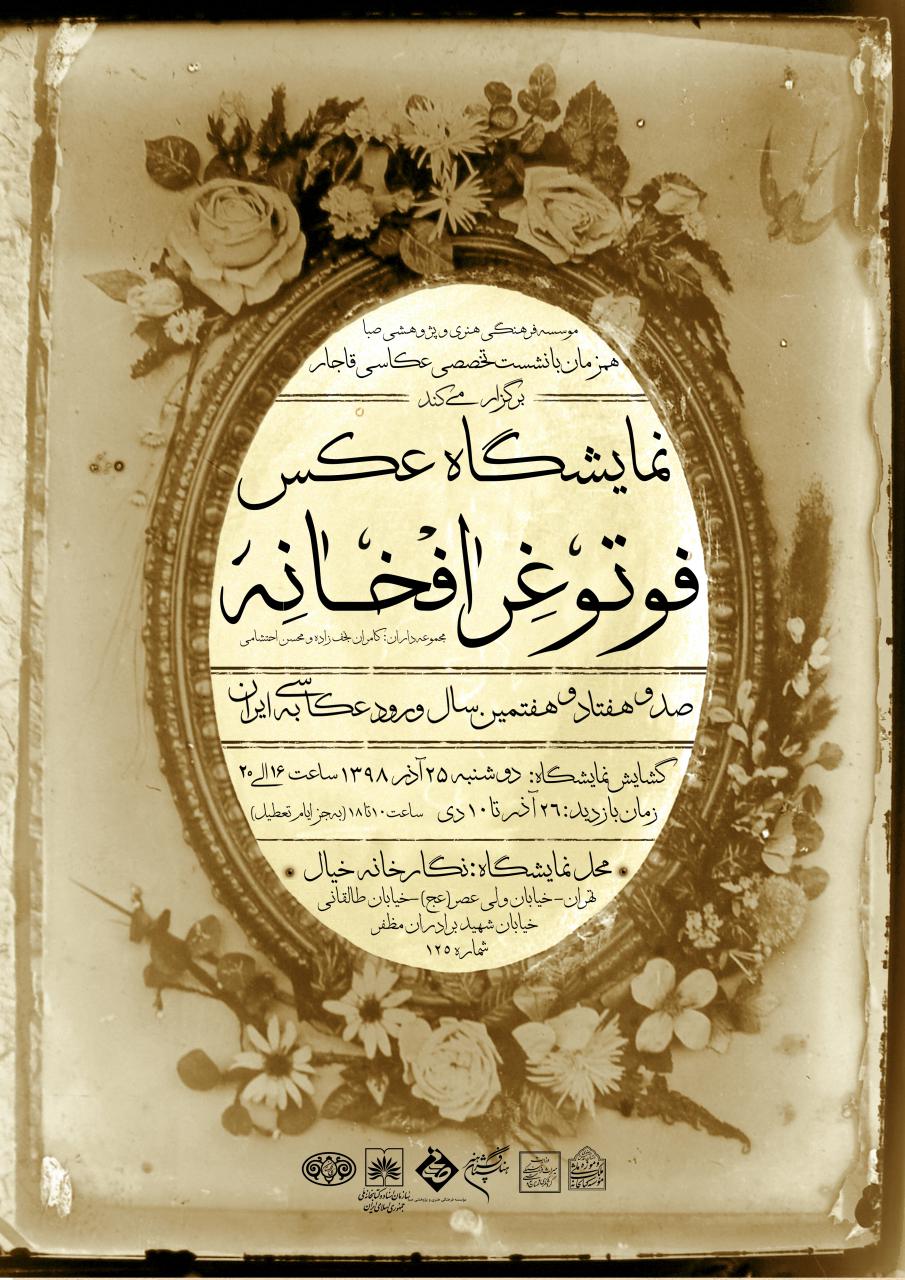 موسسه فرهنگی هنری و پژوهشی صبا
همزمان با نشست تخصصی عکاسی قاجار
برگزار می‌کند
نمایشگاه عکس
فوتوغِرافخانِه
مجموعه‌داران: کامران نجف‌زاده و محسن احتشامی
صد و هفتاد و هفتمین سال ورود عکاسی به ایران
گشایش نمایشگاه: دوشنبه ۲۵ آذر ۱۳۹۸ ساعت ۱۶ الی ۲۰
زمان بازدید: ۲۶ آذر تا ۱۰ دی ساعت ۱۰ تا ۱۸ (به جز ایام تعطیل)
محل نمایشگاه: نگارخانه خیال
تهران - خیابان ولی عصر (عج) - خیابان طالقانی
خیابان شهید برادران مظفر
شماره ۱۲۵
موسسه فرهنگی هنری و پژوهشی صبا
سازمان اسناد و کتابخانه ملی
جمهوری اسلامی ایران